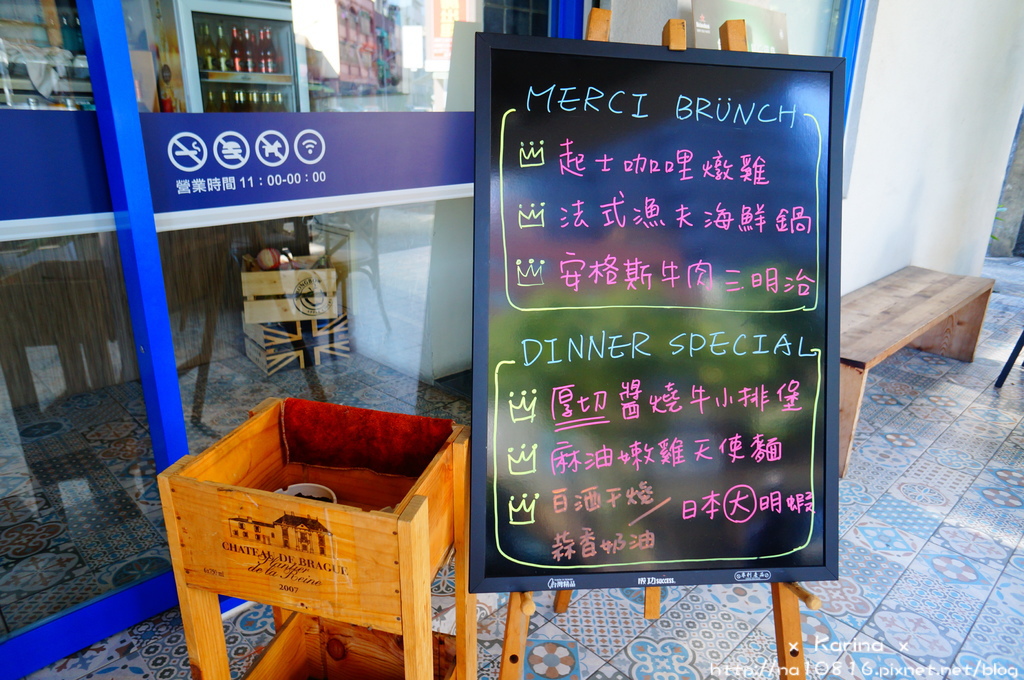 MERCI BRÜNCH
起士咖哩燉雞
法式漁夫海鮮鍋
安格斯牛肉三明治
DINNER SPECIAL
厚切醬燒牛小排堡
麻油嫩雞天使麵
白酒干燒/蒜香奶油 日本大明蝦
營業時間 11：00-00：00
CHATEAU DE BRAGUE
de la Reine
2007
台灣精品
成功 SUCCESS
x Karina x
http://na10816.pixnet.net/blog